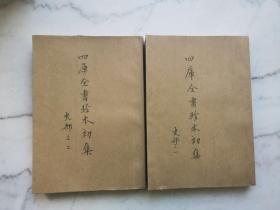 四库全書珍本初集
史部之二
四库全書珍本初集
史部一